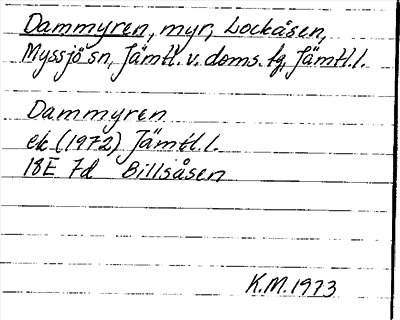 Dammyren, myr, Lockåsen,
Myssjö sn, Jämtl. v. doms. tg, Jämtl. l.
Dammyren
ek (1972) Jämtl. l.
18E 7d Billsåsen
K.M. 1973